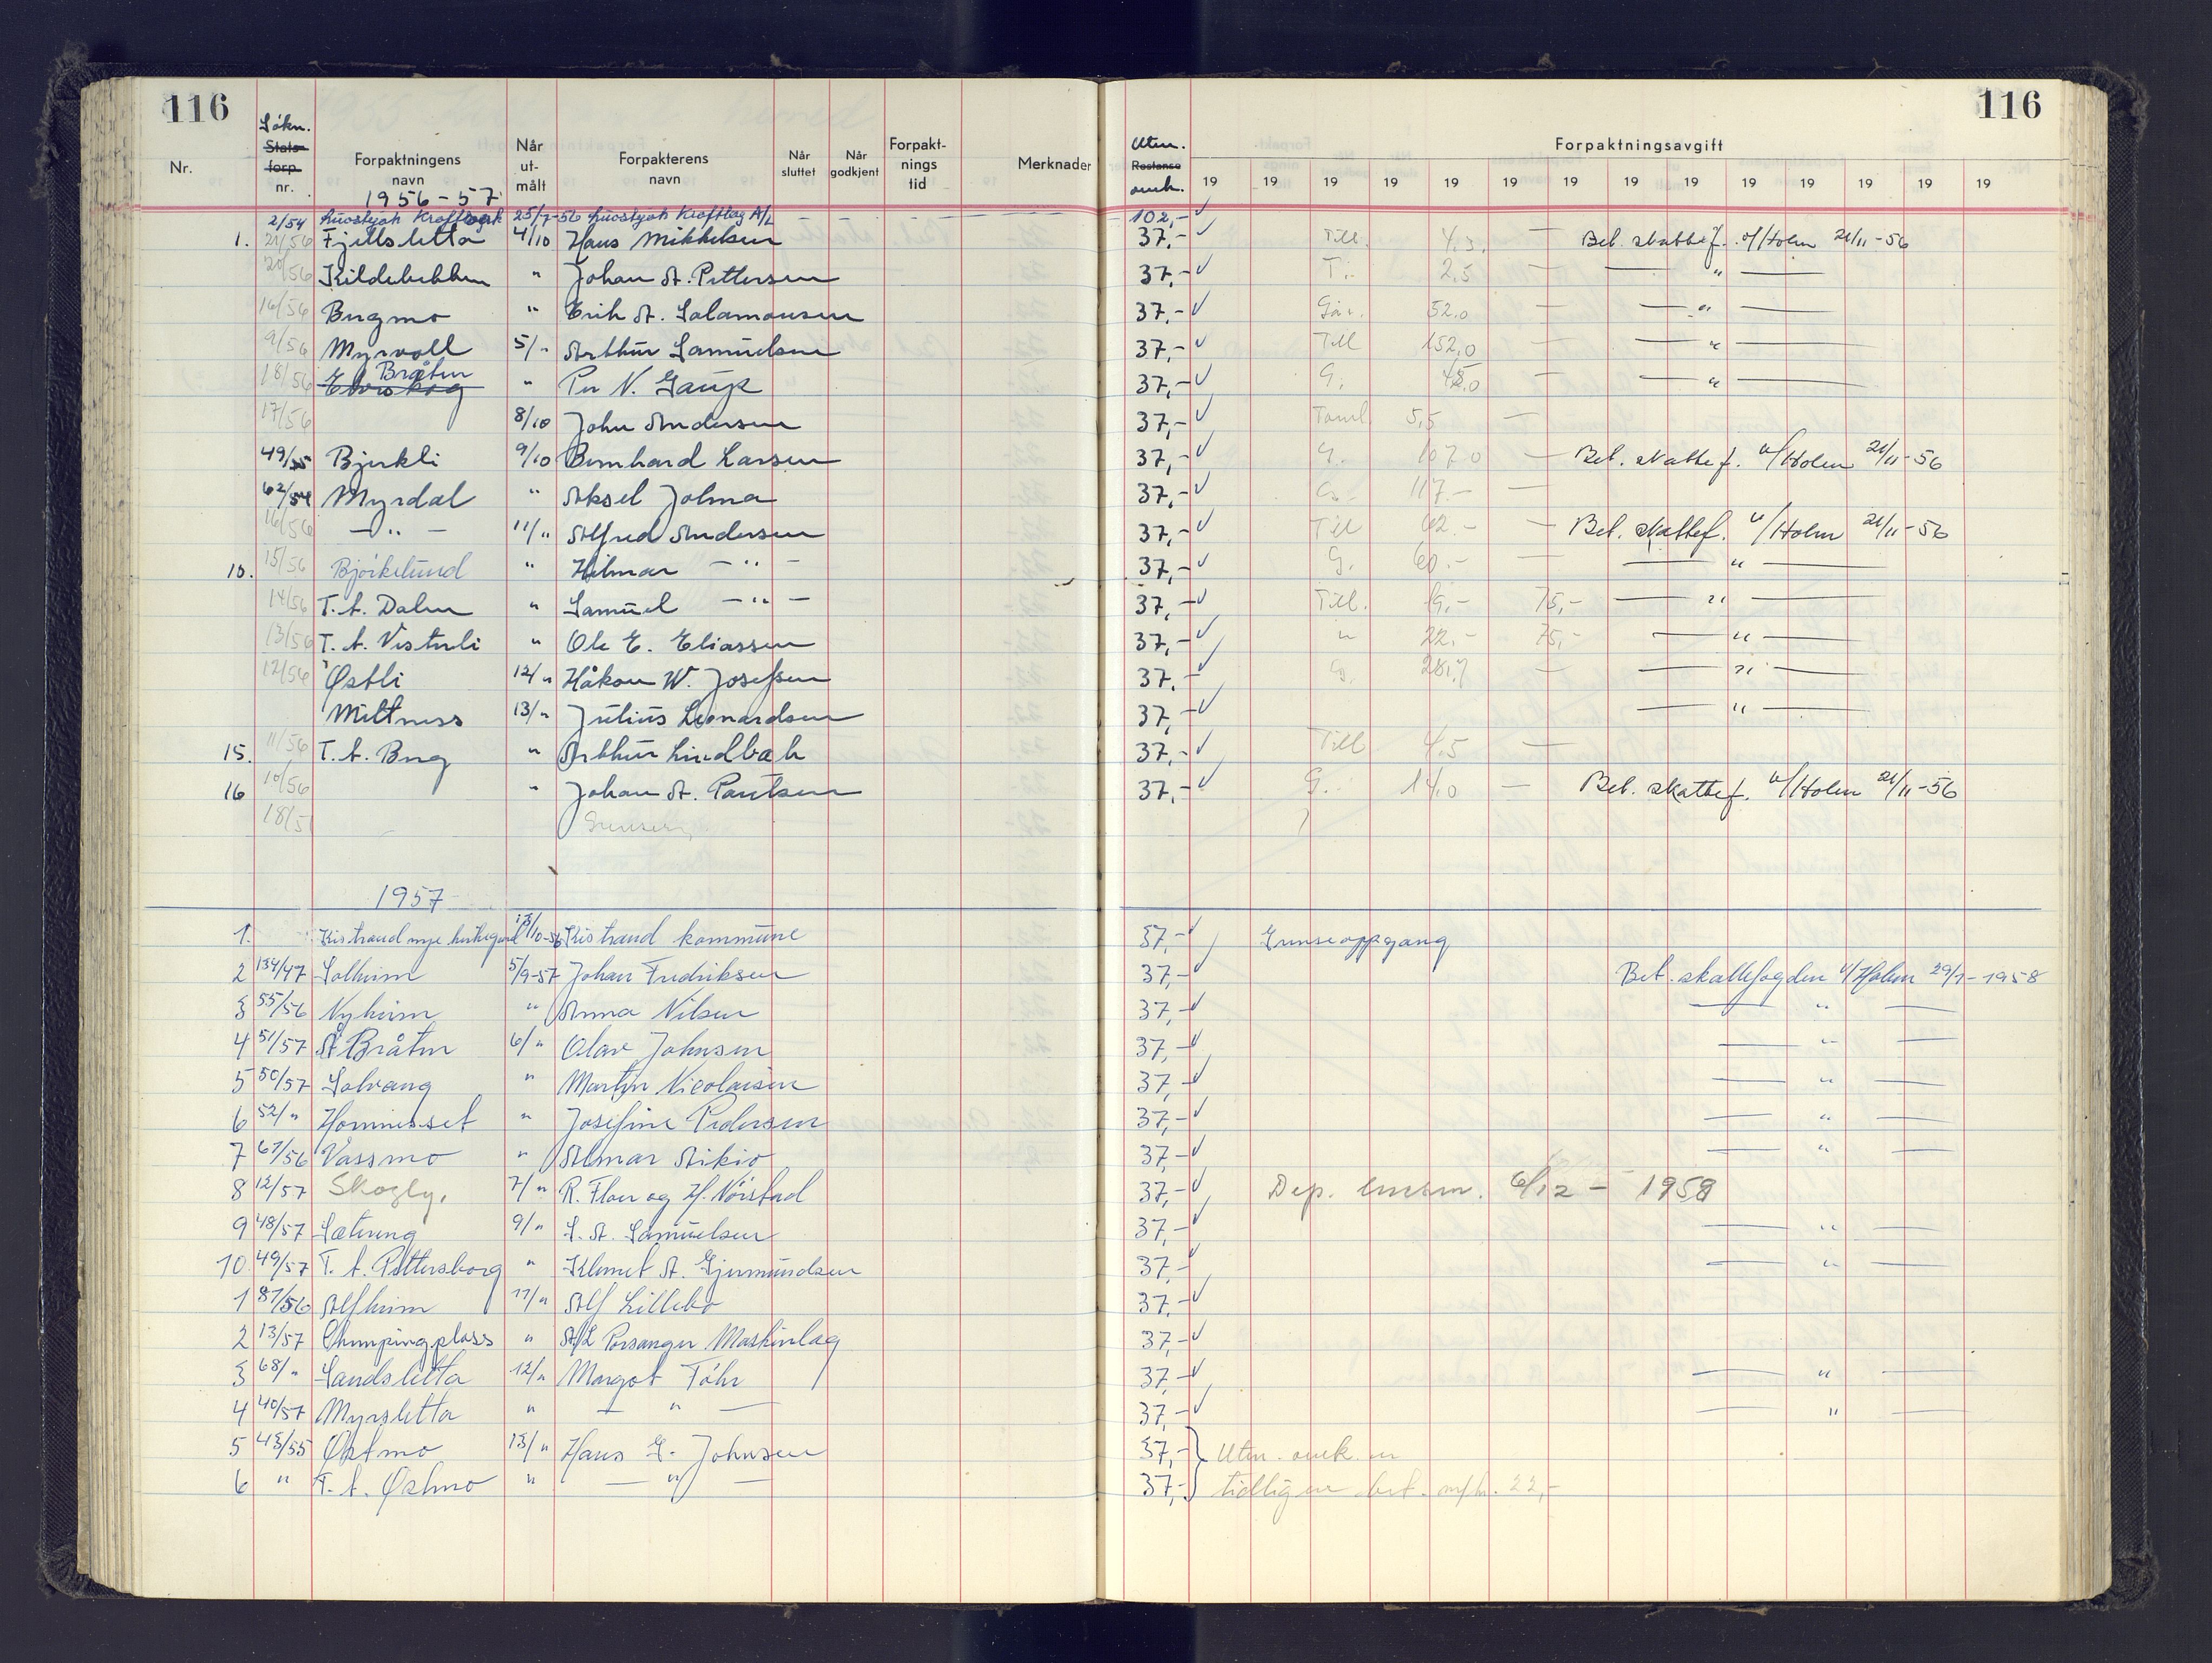 116 116
Søkn. Stats- forp. nr.
Nr. Forpaktningens navn Når ut- målt Forpakterens navn Når sluttet Når godkjent Forpakt- nings tid Merknader Utm. Restanse omk. Forpaktningsavgift
19 19 19 19 19 19 19 19 19 19 19 19 19 19
1956-57
2/54 Luostejok Kraftverk 25/7-56 Luostejok Kraftlag A/L 102,-
1. 21/56 Fjellsletta 4/10 Hans Mikkelsen 37,- Till. 4.3. — Bet. skattef. v/Holm 21/11-56
20/56 Kildebekken " Johan A. Pettersen 37,- T. 2.5 — — " —
16/56 Bugmo " Erik A. Salamonsen 37,- 52.0 — — " —
9/56 Myrvoll 5/" Arthur Samuelsen 37,- Till 152,0 — — " —
18/56 Elveskog Bråten " Per N. Gaup 37,- G. — — " —
17/56 8/10 John Andersen 37,- 5,5 —
49/55 Bjerkli 9/10 Bernhard Larsen 37,- G. 107.0 — Bet. skattef. v/Holm 21/11-56
62/54 Myrdal " Aksel Jolma 37,- G. 117.- —
16/56 — " — 11/" Alfred Andersen 37,- Till 62.- — Bet. skattef. v/Holm 21/11-56
10. 15/56 Bjørkelund " Hilmar — " — 37,- G. 60.- — — " —
14/56 T. t. Dalen " Samuel — " — 37,- Till. 19.- 75,- — " —
13/56 T. t. Vesterli " Ole E. Eliassen 37,- " 22.- 75,- — " —
12/56 Østli 12/" Håkon W. Josefsen 37,- G. — — " —
Miltness 13/" Julius Leonardsen 37,- — " —
15. 11/56 T. t. Bug " Arthur Lindbak 37,- Till 4.5 —
16 10/56 " Johan A. Paulsen 37,- G. 14,0 — Bet. skattef. v/Holm 21/11-56
18/5
1957
1. Kistrand nye kirkegård 13/10-56 Kistrand kommune 37,- Grenseoppgang
2 134/47 Solheim 5/9-57 Johan Fredriksen 37,- Bet. skattefogden v/Holm 29/1-1958
3 55/56 Nyheim " Anna Nilsen 37,- — " —
4 51/57 Bråten 6/" Olav Johnsen 37,- — " —
5 50/57 Solvang " Martin Nicolaisen 37,- — " —
6 52/" Hommesset " Josefine Pedersen 37,- — " —
7 67/56 Vassmo " Almar Aikio 37,- — " —
8 12/57 Skogly. 7/" R. Floer og H. Nørstad 37,- Dep. 6/12 - 1958
9 48/57 Sætereng 9/" S. A. Samuelsen 37,- — " —
10. 49/57 T. t. Pettersborg " Klemet A. Gjermundsen 37,- — " —
1 87/56 Alfheim 11/" Alf Lillebo 37,-
2 13/57 Campingplass " A/L Porsanger Maskinlag 37,-
3 68/" Sandsletta 12/" Margot Føhr 37,- — " —
4 40/57 Myrsletta " — " — 37,- — " —
5 43/55 Østmo 13/" Hans G. Johnsen 37,- Utm. omk. er
6 " T. t. Østmo " — " — 37,- tidligere bet. m/kr. 22,-